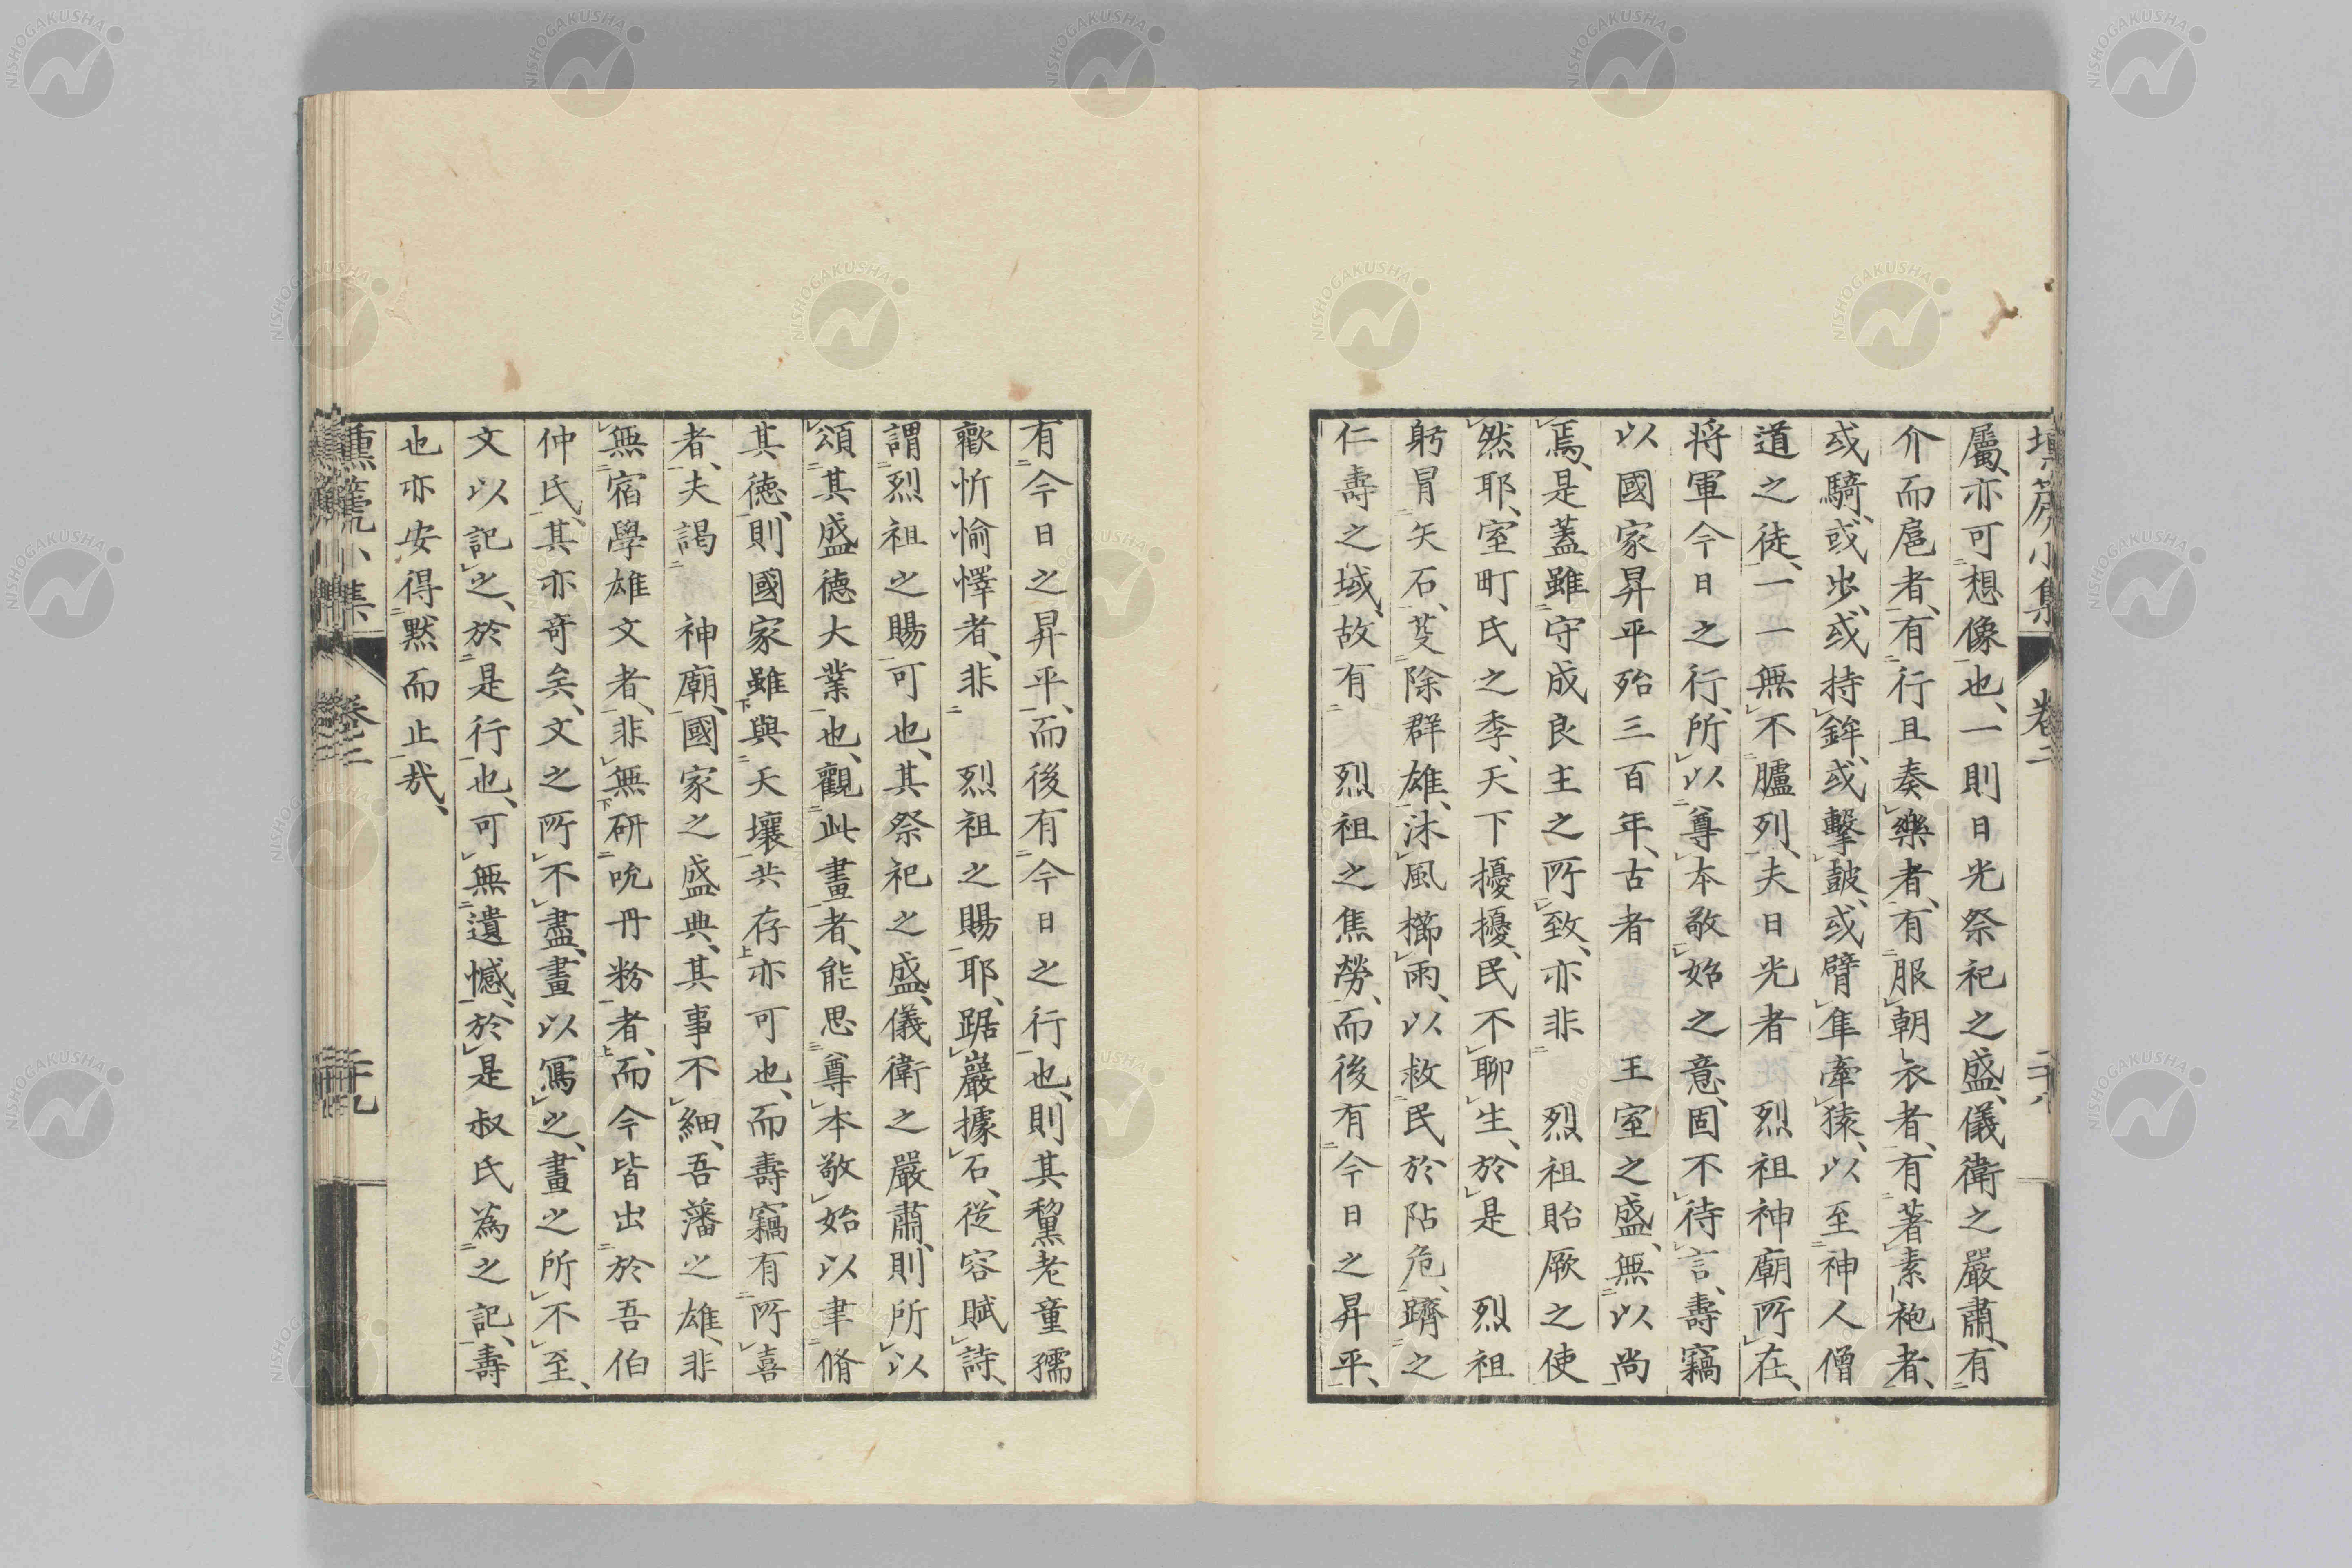 屬、亦可想像也、一則日光祭祀之盛、儀衛之嚴肅、有
介而扈者、有行且奏樂者、有服朝衣者、有著素袍者、
或騎、或步、或持鉾、或擊鼓、或臂隼牽猿、以至神人僧
道之徒、一一無不臚列、夫日光者　烈祖神廟所在、
將軍今日之行、所以尊本敬始之意、固不待言、壽竊
以國家昇平殆三百年、古者　王室之盛、無以尚
焉、是蓋雖守成良主之所致、亦非　烈祖貽厥之使
然耶、室町氏之季、天下擾擾、民不聊生、於是　烈祖
躬冒矢石、芟除群雄、沐風櫛雨、以救民於阽危、躋之
仁壽之域、故有　烈祖之焦勞、而後有今日之昇平、
有今日之昇平、而後有今日之行也、則其黎老童孺
歡忻愉懌者、非　烈祖之賜耶、踞巖據石、從容賦詩、
謂烈祖之賜可也、其祭祀之盛、儀衛之嚴肅、則所以
頌其盛德大業也、觀此畫者、能思尊本敬始以聿脩
其德、則國家雖與天壤共存亦可也、而壽竊有所喜
者、夫謁　神廟、國家之盛典、其事不細、吾藩之雄、非
無宿學雄文者、非無研吮丹粉者、而今皆出於吾伯
仲氏、其亦奇矣、文之所不盡、畫以寫之、畫之所不至、
文以記之、於是行也、可無遺憾、於是叔氏為之記、壽
也亦安得默而止哉、
壎篪小集
卷二
二十九
NISHOGAKUSHA